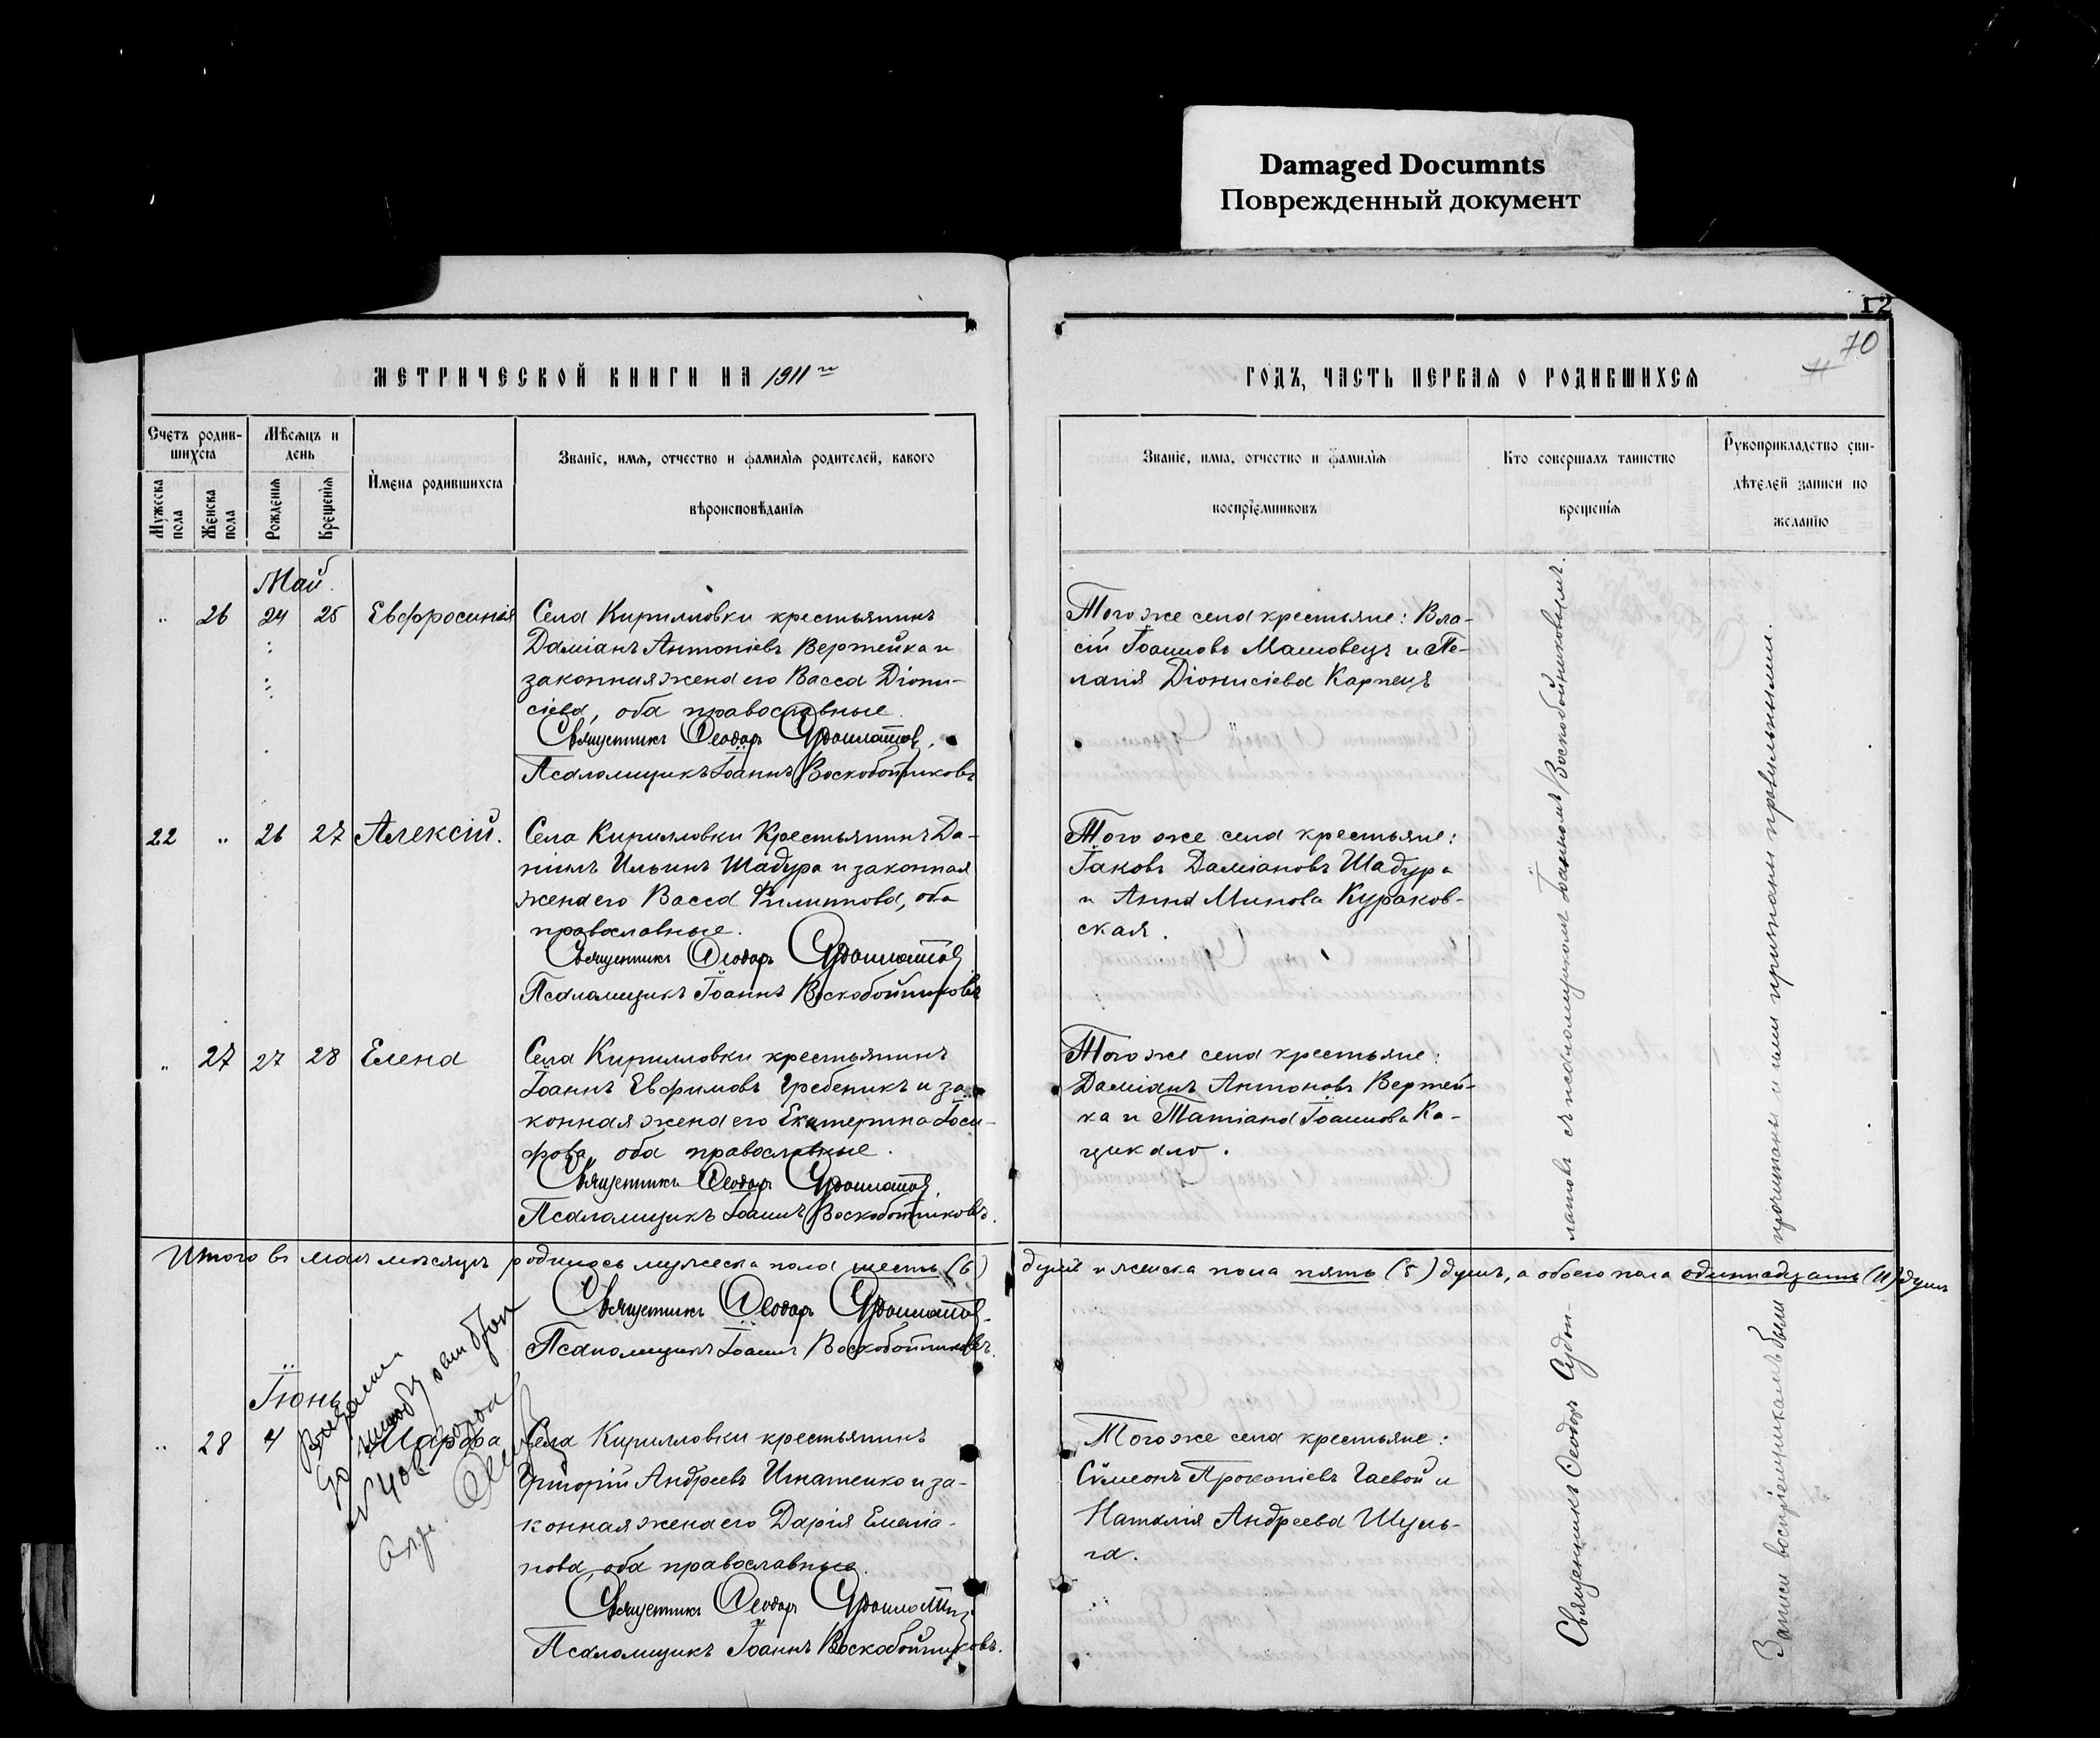 Damaged Documnts
Поврежденный документ
12
70
МЕТРИЧЕСКОЙ КНИГИ НА 1911 го
ГОДЪ, ЧАСТЬ ПЕРВАЯ О РОДИВШИХСЯ
Счетъ родив-
шихсѧ
Мужеска
пола
Женска
пола
Мѣсѧцъ и
день
Рожденїѧ
Крещенїѧ
Имена родившихсѧ
Званїе, имѧ, отчество и фамилїѧ родителей, какого
вѣроисповѣданїѧ
Званїе, имѧ, отчество и фамилїѧ
воспрїемниковъ
Кто совершалъ таинство
крещенїѧ
Рукоприкладство сви-
дѣтелей записи по
желанїю
Май.
" 26 24 25 Евфросинія
Села Кирилловки крестьянинъ
Даміанъ Антоніевъ Вертейка и
законная жена его Васса Діони-
сіева, оба православные.
Священникъ Ѳеодоръ
Псаломщикъ Іоаннъ Воскобойниковъ
Того же села крестьяне: Вла-
сій Іоанновъ Машовецъ и Пе-
лагія Діонисіева Карпецъ
22 " 26 27 Алексій.
Села Кирилловки Крестьянинъ Да-
ніилъ Ильинъ Шадура и законная
жена его Васса Филиппова, оба
православные.
Священникъ Ѳеодоръ
Псаломщикъ Іоаннъ Воскобойниковъ
Того же села крестьяне:
Іаковъ Даміановъ Шадура
и Анна Минова Кураков-
ская.
" 27 27 28 Елена
Села Кирилловки крестьянинъ
Іоаннъ Евфимовъ Гребеникъ и за-
конная жена его Екатерина Іоси-
фова, оба православные.
Священникъ Ѳеодоръ
Псаломщикъ Іоаннъ Воскобойниковъ.
Того же села крестьяне:
Даміанъ Антоновъ Вертей-
ка и Татіана Іоаннова Ка-
цикало.
Итого въ маѣ мѣсяцѣ родилось мужеска пола шесть (6) душъ и женска пола пять (5) душъ, а обоего пола одиннадцать (11) душъ
Священникъ Ѳеодоръ
Псаломщикъ Іоаннъ Воскобойниковъ.
Іюнь
" 28 4 Марфа
Села Кирилловки крестьянинъ
Григорій Андреевъ Игнатенко и за-
конная жена его Дарія Емелiа-
нова, оба православные.
Священникъ Ѳеодоръ
Псаломщикъ Іоаннъ Воскобойниковъ.
Того же села крестьяне:
Сѵмеонъ Прокопіевъ Гаевой и
Наталія Андреева Шуль-
га.
Священникъ Ѳеодоръ съ псаломщикомъ Іоанномъ Воскобойниковымъ.
Записи воспріемникамъ были прочитаны и ими признаны правильными.